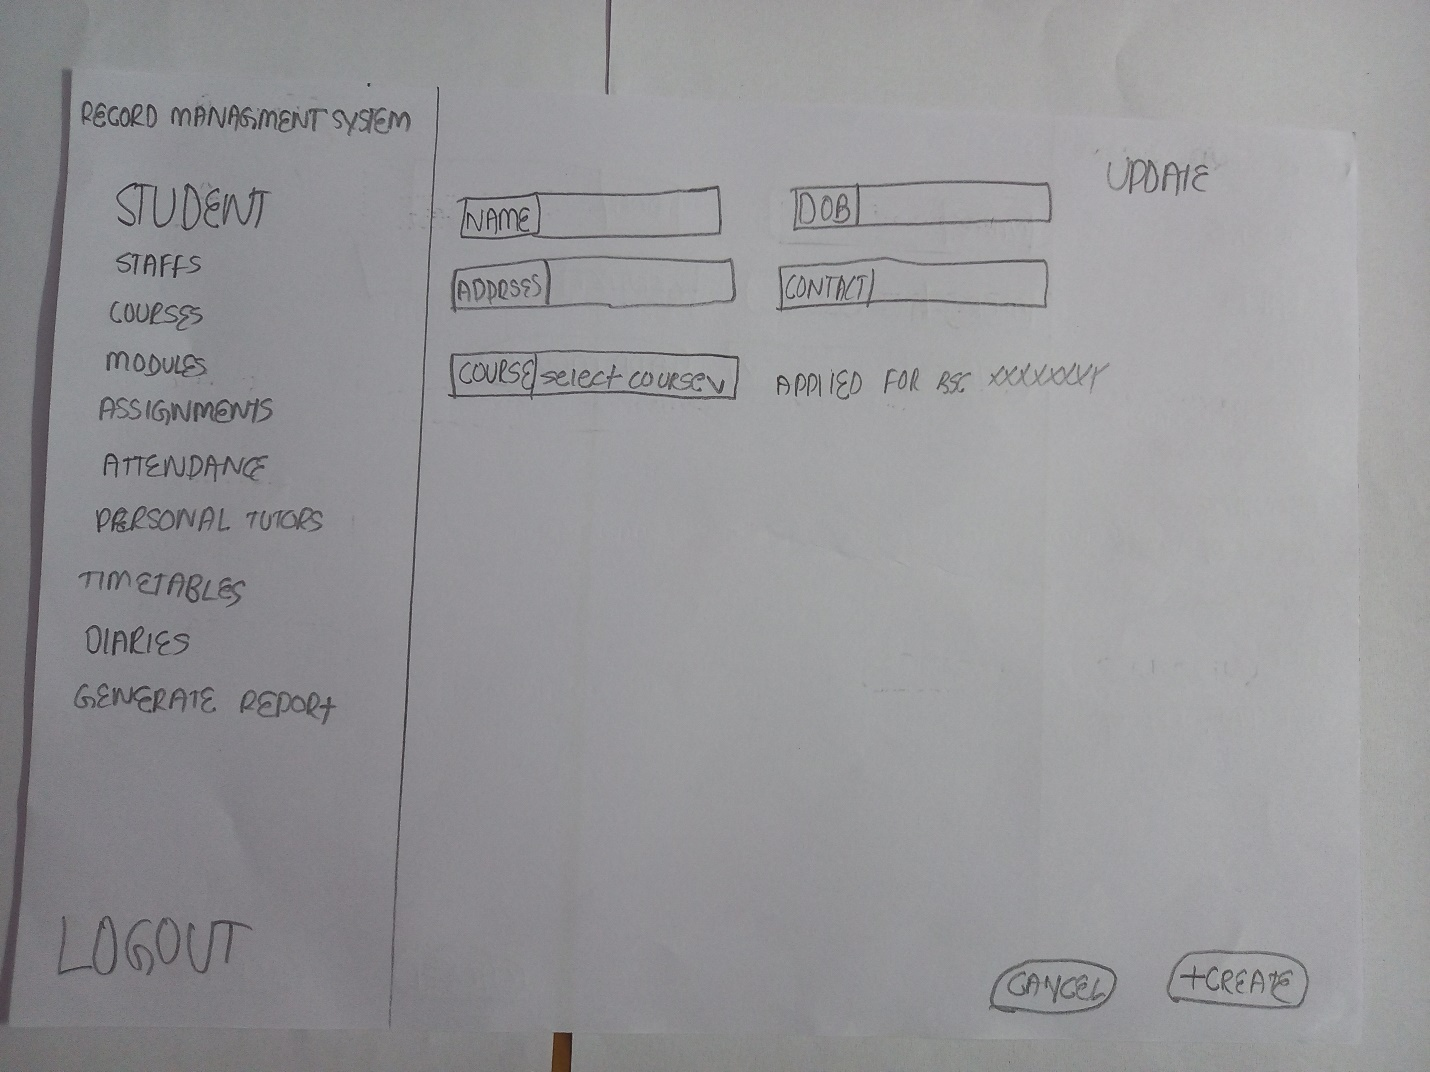 RECORD MANAGMENT SYSTEM
STUDENT
STAFFS
COURSES
MODULES
ASSIGNMENTS
ATTENDANCE
PERSONAL TUTORS
TIMETABLES
DIARIES
GENERATE REPORT
LOGOUT
UPDATE
NAME DOB
ADDRSES CONTACT
COURSE select course v APPLIED FOR BSC XXXXXXXY
CANCEL +CREATE